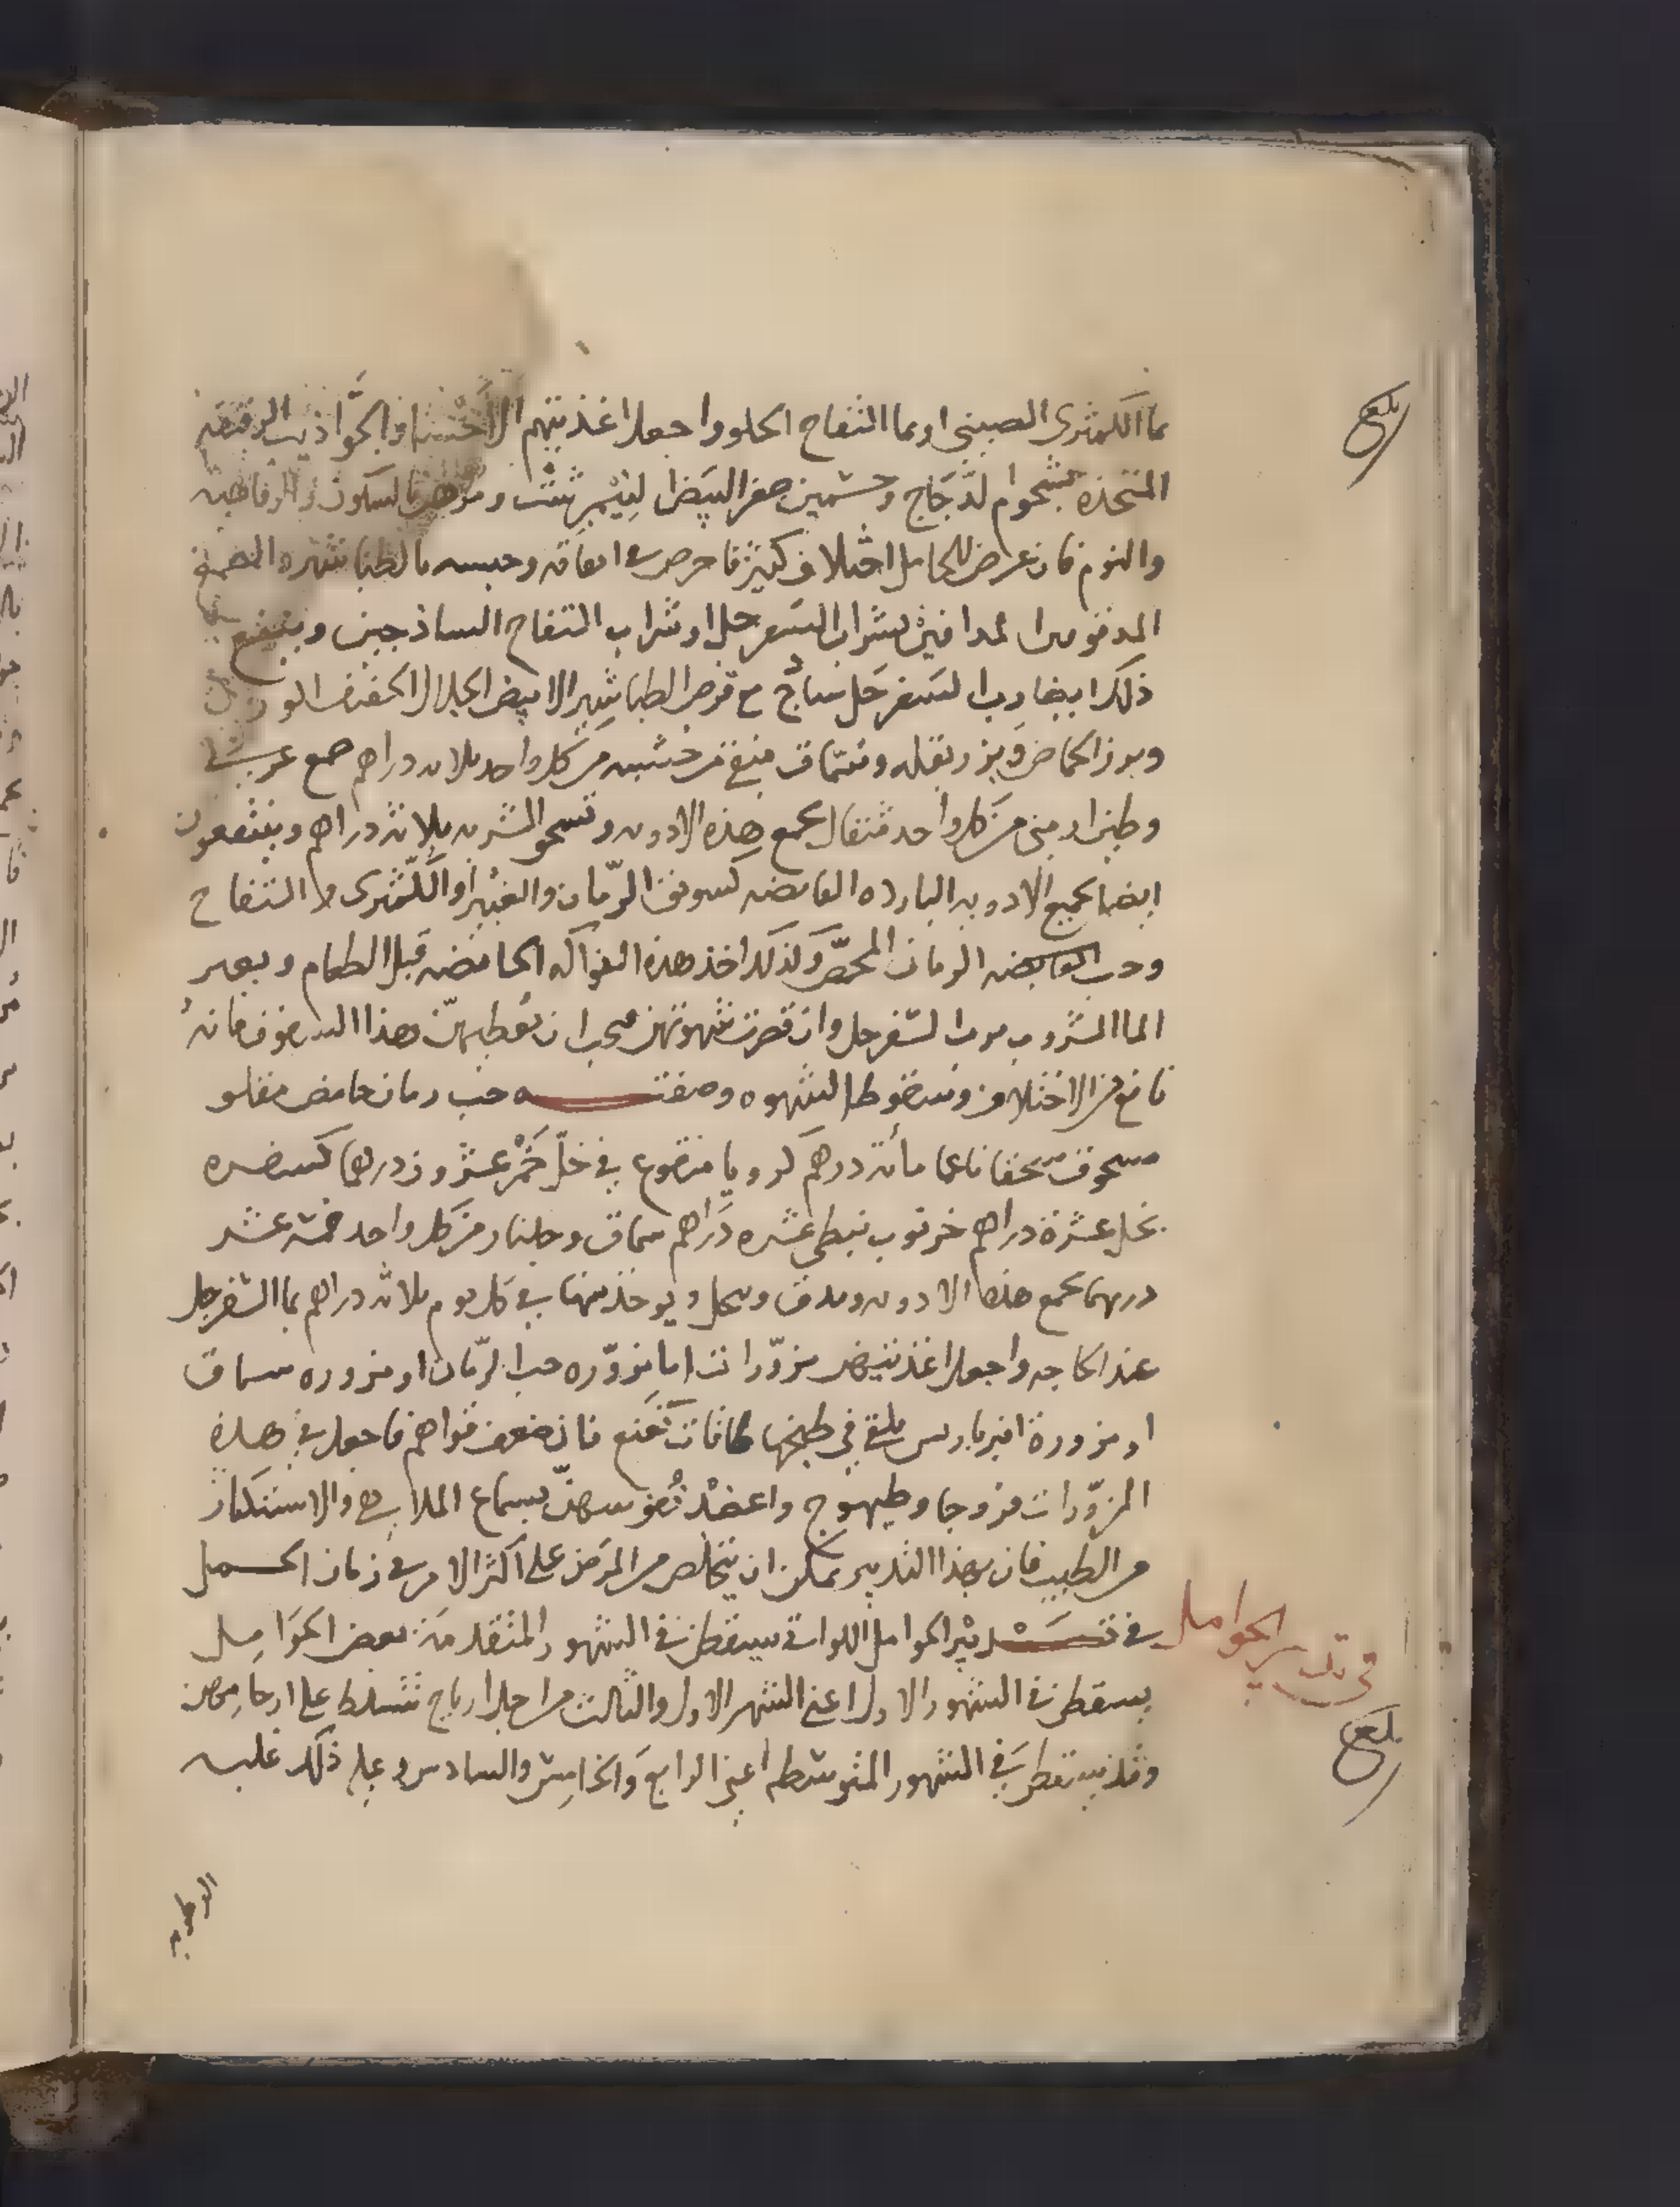 بما الكمثرى الصيني او بما التفاح الحلو واجعل اغذيتهم الاحسا والجواذيب الرقيقه
المتخذه بشحوم الدجاج وحسهن صفر البيض النيمبرشت ومرهن بالسكون والرفاهيه
والنوم فان عرض للحامل اختلاف كثير فاحرص في ايقافه وحبسه بالطباشير والصمغ
المدقوق المداف بشراب السفرجل او شراب التفاح الساذجين وينفع
ذلك ايضا رب السفرجل ساذج مع قرص الطباشير الابيض الجلال الخفيف الورد
وبزر الحماض وبزر بقله وسماق منقى من خشبه من كل واحد ثلاثه دراهم صمغ عربي
وطين ارمني من كل واحد مثقال يجمع هذه الادويه وتسحق الشربه ثلاثه دراهم وينتفعون
ايضا بجميع الادويه البارده القابضه كسويق الرمان والغبيرا والكمثرى والتفاح
وحب الرمان المحمص وكذلك اخذ هذه الفواكه الحامضه قبل الطعام وبعد
الما المشروب برب السفرجل وان قصرت شهوتهن فيجب ان تعطيهن هذا السفوف فانه
نافع من الاختلاف وسقوط الشهوه وصفته حب رمان حامض مقلو
مسحوق سحقا ناعما مائة درهم كرويا منقوع في خل خمر عشرون درهما كسفره
بخل عشرة دراهم خرنوب نبطي عشره دراهم سماق وجلنار من كل واحد خمسة عشر
درهما تجمع هذه الادويه وتدق وتنخل ويوخذ منها في كل يوم ثلاثه دراهم بما السفرجل
عند الحاجه واجعل اغذيتهن مزورات اما مزوره حب الرمان او مزوره سماق
او مزورة انبرباريس يلقى في طبخها طاقات نعنع فان ضعف قواهم فاجعل في هذه
المزورات فروجا وطيهوج واعضد نفوسهن بسماع الملاهي والاستكثار
من الطيب فان بهذا التدبير يمكن ان يتخلص من المرض على اكثر الامر في زمان الحمل
في تدبير الحوامل اللواتي يسقطن في الشهور المتقدمة بعض الحوامل
يسقطن في الشهور الاول اعني الشهر الاول والثالث من اجل ارياح تتسلط على ارحامهن
وقد يسقطن في الشهور المتوسطه اعني الرابع والخامس والسادس وعلة ذلك غلبه
الرطوبه
بلغ
في تدبير الحوامل
بلغ